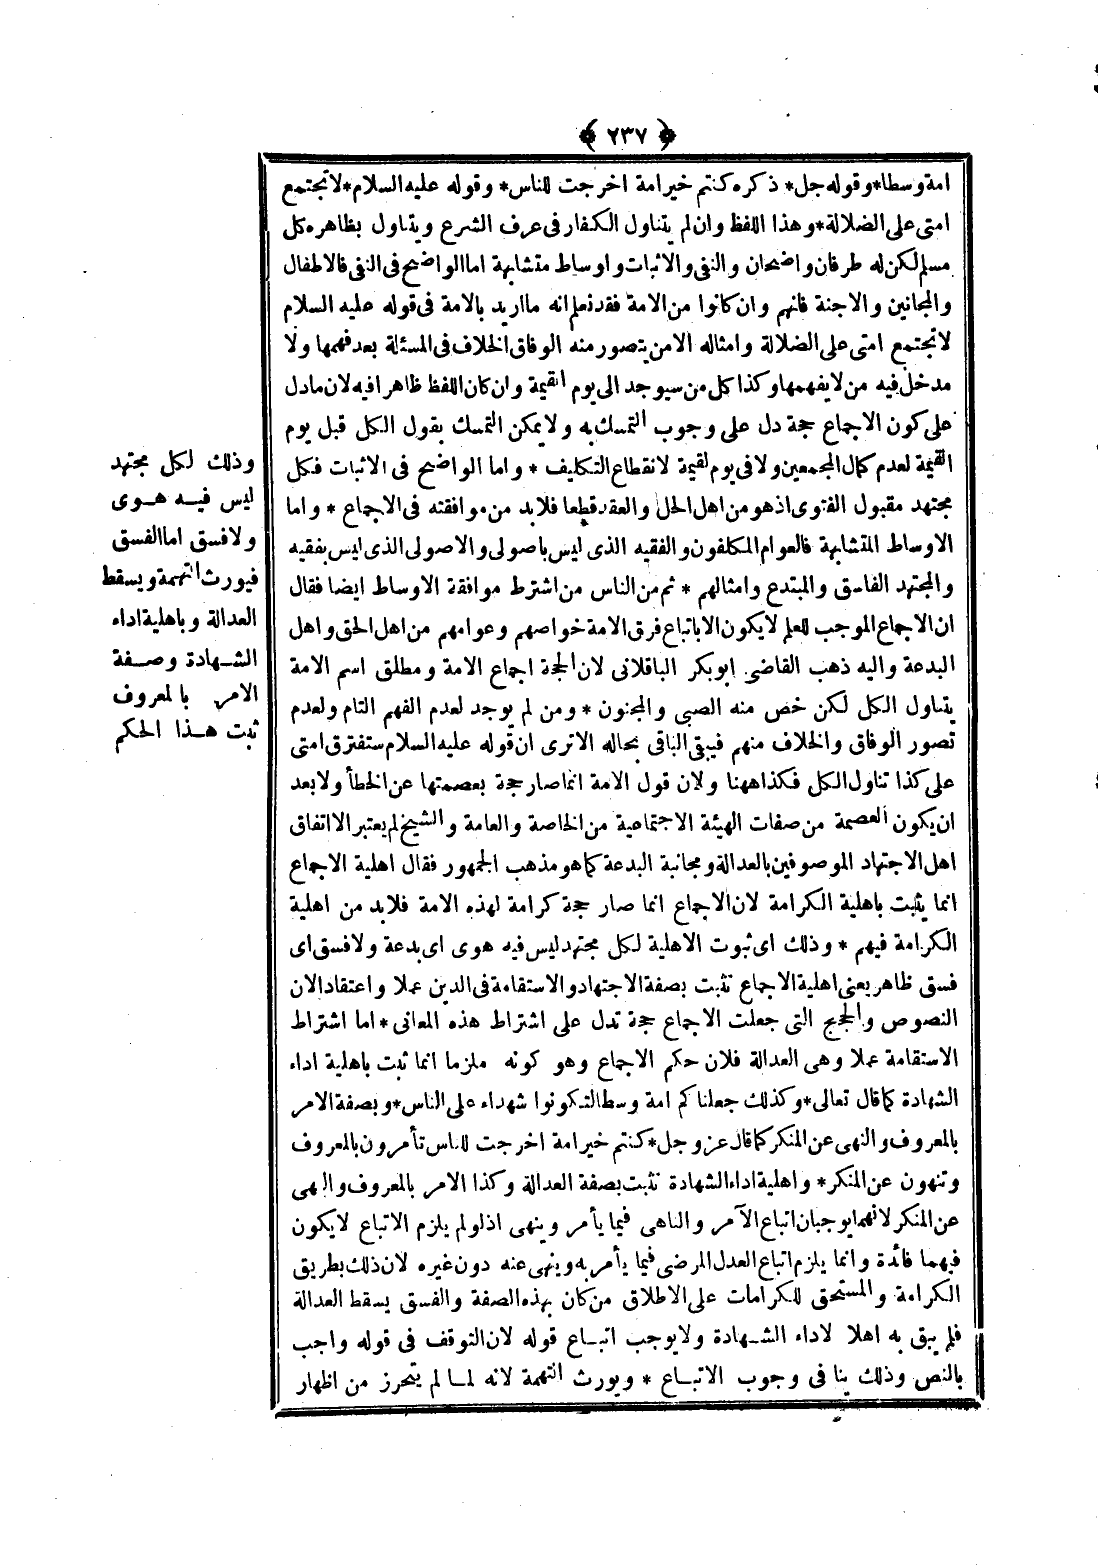 ﴿ ٢٣٧ ﴾
امة وسطا * وقوله جل * ذكره كنتم خير امة اخرجت للناس * وقوله عليه السلام * لا تجتمع
امتى على الضلالة * وهذا اللفظ وان لم يتناول الكفار فى عرف الشرع ويتناول بظاهره كل
مسلم لكن له طرفان واضحان والنفى والاثبات واوساط متشابهة اما الواضح فى النفى فالاطفال
والمجانين والاجنة فانهم وان كانوا من الامة فقد نعلم انه ما اريد بالامة فى قوله عليه السلام
لا تجتمع امتى على الضلالة وامثاله الا من يتصور منه الوفاق الخلاف فى المسئلة بعد فهمها ولا
مدخل فيه من لا يفهمها وكذا كل من سيوجد الى يوم القيمة وان كان اللفظ ظاهرا فيه لان ما دل
على كون الاجماع حجة دل على وجوب التمسك به ولا يمكن التمسك بقول الكل قبل يوم
القيمة لعدم كمال المجمعين ولا فى يوم لقيمة لانقطاع التكليف * واما الواضح فى الاثبات فكل
مجتهد مقبول الفتوى اذ هو من اهل الحل والعقد قطعا فلا بد من موافقته فى الاجماع * واما
الاوساط المتشابهة فالعوام المكلفون والفقيه الذى ليس باصولى والاصولى الذى ليس بفقيه
والمجتهد الفاسق والمبتدع وامثالهم * ثم من الناس من اشترط موافقة الاوساط ايضا فقال
ان الاجماع الموجب للعلم لا يكون الا باتباع فرق الامة خواصهم وعوامهم من اهل الحق واهل
البدعة واليه ذهب القاضى ابو بكر الباقلانى لان الحجة اجماع الامة ومطلق اسم الامة
يتناول الكل لكن خص منه الصبى والمجنون * ومن لم يوجد لعدم الفهم التام ولعدم
تصور الوفاق والخلاف منهم فيبقى الباقى بحاله الا ترى ان قوله عليه السلام ستفترق امتى
على كذا تناول الكل فكذا ههنا ولان قول الامة انما صار حجة بعصمتها عن الخطأ ولا بعد
ان يكون العصمة من صفات الهيئة الاجتماعية من الخاصة والعامة والشيخ لم يعتبر الا اتفاق
اهل الاجتهاد الموصوفين بالعدالة ومجانبة البدعة كما هو مذهب الجمهور فقال اهلية الاجماع
انما يثبت باهلية الكرامة لان الاجماع انما صار حجة كرامة لهذه الامة فلا بد من اهلية
الكرامة فيهم * وذلك اى ثبوت الاهلية لكل مجتهد ليس فيه هوى اى بدعة ولا فسق اى
فسق ظاهر يعنى اهلية الاجماع تثبت بصفة الاجتهاد والاستقامة فى الدين عملا واعتقادا لان
النصوص والحجج التى جعلت الاجماع حجة تدل على اشتراط هذه المعانى * اما اشتراط
الاستقامة عملا وهى العدالة فلان حكم الاجماع وهو كونه ملزما انما ثبت باهلية اداء
الشهادة كما قال تعالى * وكذلك جعلناكم امة وسطا لتكونوا شهداء على الناس * وبصفة الامر
بالمعروف والنهى عن المنكر كما قال عز وجل * كنتم خير امة اخرجت للناس تأمرون بالمعروف
وتنهون عن المنكر * واهلية اداء الشهادة تثبت بصفة العدالة وكذا الامر بالمعروف والنهى
عن المنكر لانهما يوجبان اتباع الآمر والناهى فيما يأمر وينهى اذ لو لم يلزم الاتباع لا يكون
فيهما فائدة وانما يلزم اتباع العدل المرضى فيما يأمر به وينهى عنه دون غيره لان ذلك بطريق
الكرامة والمستحق للكرامات على الاطلاق من كان بهذه الصفة والفسق يسقط العدالة
فلم يبق به اهلا لاداء الشهادة ولا يوجب اتباع قوله لان التوقف فى قوله واجب
بالنص وذلك ينا فى وجوب الاتباع * ويورث التهمة لانه لما لم يتحرز من اظهار
وذلك لكل مجتهد
ليس فيه هوى
ولا فسق اما الفسق
فيورث التهمة ويسقط
العدالة وباهلية اداء
الشهادة وصفة
الامر بالمعروف
ثبت هذا الحكم